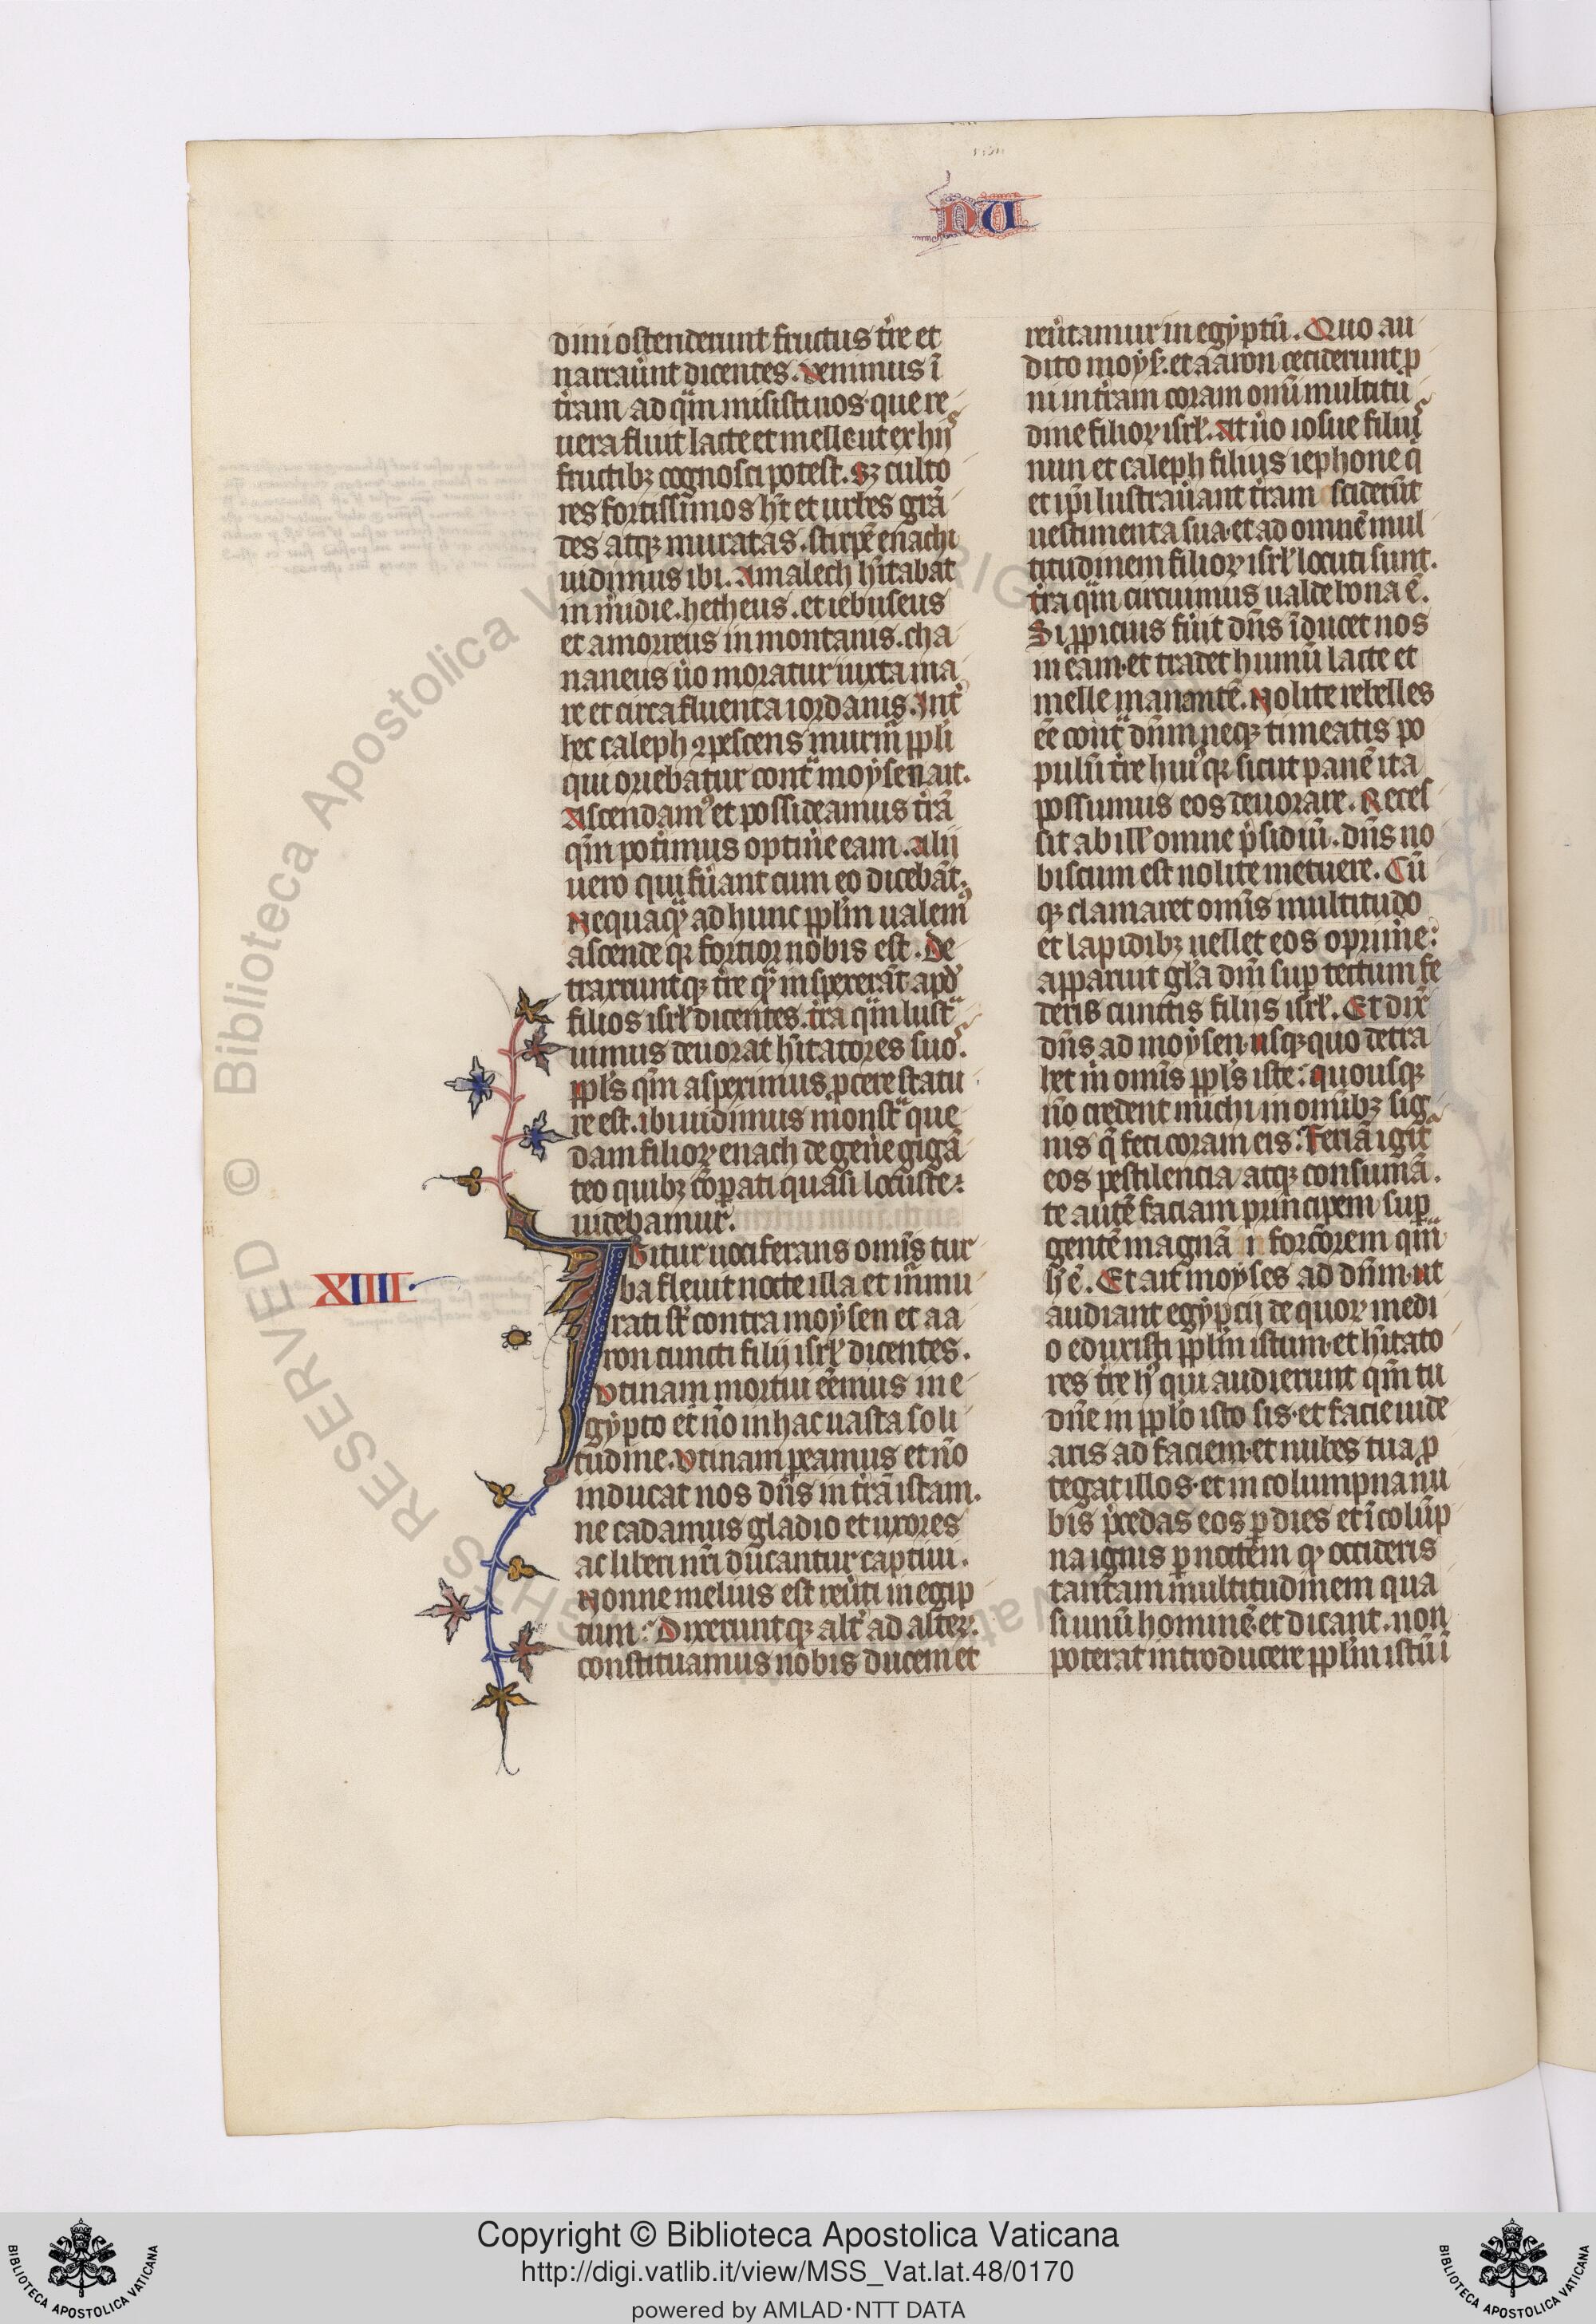 NU
dini ostenderunt fructus t̉re et
narrau̾unt dicentes. venimus ī
t̉ram ad qͣm misisti nos· que re
uera fluit lacte et melle ut ex hijs
fructibꝫ cognosci potest. Sꝫ culto
res fortissimos hn̄t et urbes grā
des atqꝫ muratas. stirpē enachi
uidimus ibi. Amalech hītabat
in m̾idie. hetheus. et iebuseus
et amorreus in montanis. cha
naneus uͦo moratur iuxta ma
re et circa fluenta iordanis. Int̾
hec caleph ꝯpescens murm̾ ppl̄i
qui oriebatur contͣ moẏsen ait.
Ascendamꝰ et possideamus t̉rā
qm̄ pot̾imus optin̾e eam. Alij
uero qui fu̾ant cum eo dicebāt.
Nequaqͣꝫ ad hunc ppl̄m ualemꝰ
ascende qꝛ fortior nobis est. De
traxeruntqꝫ t̉re qͣꝫ inspexerāt apd̾
filios isrł dicentes. t̉ra qͣm lustͣ
uimus deuorat hītatores suos.
ppl̄s qm̄ asperimus ꝓcere statu
re est. ibi uidimus monstͣ que
dam filioꝝ enach de gen̾e gigā
teo quibꝫ cōꝑati quasi locuste
uidebamur.
XIIII
Igitur uociferans om̄is tur
ba fleuit nocte illa et m̾mu
rati sūt contra moẏsen et aa
ron cuncti filij isrł dicentes.
Vtinam mortui eēmus in e
gẏpto et nō in hac uasta soli
tudine. Vtinam ꝑeamus et nō
inducat nos dn̄s in t̉rā istam.
ne cadamus gladio et uxores
ac liberi nr̄i ducantur captiui.
Nonne melius est reu̾ti in egip
tum. Dixeruntqꝫ alt̾ ad alter̄.
constituamus nobis ducem et
reu̾tamur in egẏptū. Quo au
dito moẏs̾. et aaron ceciderunt ꝓ
ni in t̉ram coram om̄i multitu
dine filioꝝ isrł. At uͦo iosue filiꝰ
nun et caleph filius iephone q̇
et ip̄i lustrau̾ant t̉ram sciderūt
uestimenta sua· et ad omnē mul
titudinem filioꝝ isrł locuti sunt.
t̉ra qͣm circuimus ualde bona ē.
Si ꝓpicius fu̾it dn̄s īducet nos
in eam· et tradet humū lacte et
melle manantē. Nolite rebelles
eē contͣ dn̄m neqꝫ timeatis po
pulū t̉re huiꝰ qꝛ sicut panē ita
possumus eos deuorare. Reces
sit ab ill̾ omne p̾sidiū. dn̄s no
biscum est nolite metuere. Cū
qꝫ clamaret om̄is multitudo
et lapidibꝫ uellet eos oprim̾e:
apparuit gl̄a dn̄i suꝑ tectum fe
deris cunctis filiis isrł. Et dix̾
dn̄s ad moẏsen· usqꝫquo detra
het m̾ om̄is ppl̄s iste: quousqꝫ
nō credent michi in om̄ibꝫ sig
nis q̄ feci coram eis: Feriā igit̾
eos pestilencia atqꝫ consumā.
te autē faciam principem suꝑ
gentē magnā ⁊ forc̾orem qͣm
h̾ ē. Et ait moẏses ad dn̄m· ut
audiant egẏpcij de quoꝝ medi
o eduxisti ppl̄m istum· et hītato
res t̉re hꝰ qui audierunt qm̄ tu
dn̄e in ppl̄o isto sis· et facie uide
aris ad faciem· et nubes tua ꝓ
tegat illos· et in columpna nu
bis p̾cedas eos ꝑ dies et ī colūp
na ignis ꝑ noctem qꝫ occideris
tantam multitudinem qua
si unū hominē· et dicant. non
poterat introducere ppl̄m istū ī
Copyright © Biblioteca Apostolica Vaticana
http://digi.vatlib.it/view/MSS_Vat.lat.48/0170
powered by AMLAD·NTT DATA
BIBLIOTECA APOSTOLICA VATICANA
BIBLIOTECA APOSTOLICA VATICANA